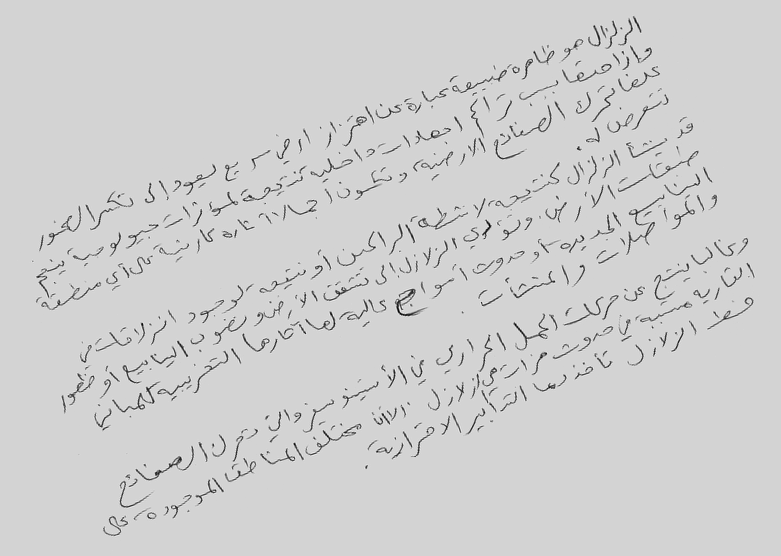 الزلزال هو ظاهرة طبيعية عبارة عن اهتزاز ارضي سريع يعود إلى تكسر الصخور
وإزاحتها بسبب تراكم اجهادات داخلية نتيجة لمؤثرات جيولوجية ينجم
عنها تحرك الصفائح الارضية، وتكون آثاره كارثية على أي منطقة
تتعرض له.
قد ينشأ الزلزال كنتيجة لأنشطة البراكين أو نتيجه لوجود انزلاقات في
طبقات الأرض. وتؤدي الزلازل إلى تشقق الأرض ونضوب الينابيع أو ظهور
الينابيع الجديده، أو حدوث أمواج عالية لها آثارها التخريبيه للمباني
والمواصلات والمنشأت.
وغالبا ينتج عن حركات الحمل الحراري في الأستينوسفير والتي تحرك الصفائح
القارية مسببه في حدوث هزات هي الزلازل. مختلف المناطق الموجوده على
خط الزلازل تأخذ التدابير الاحترازية.